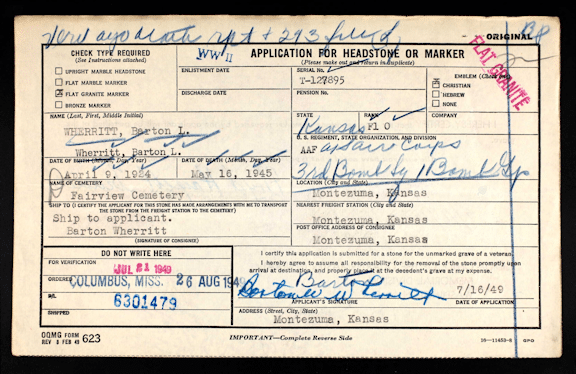 death rpt + 293 filed
ORIGINAL
CHECK TYPE REQUIRED
(See Instructions attached)
WW II
APPLICATION FOR HEADSTONE OR MARKER
(Please make out and return in duplicate)
UPRIGHT MARBLE HEADSTONE
FLAT MARBLE MARKER
FLAT GRANITE MARKER
BRONZE MARKER
ENLISTMENT DATE
DISCHARGE DATE
SERIAL No.
T-127895
PENSION No.
EMBLEM (Check one)
CHRISTIAN
HEBREW
NONE
FLAT GRANITE
NAME (Last, First, Middle Initial)
WHERRITT, Barton L.
Wherritt, Barton L.
STATE
Kansas
RANK
Fl O
COMPANY
U.S. REGIMENT, STATE ORGANIZATION, AND DIVISION
AAF
Air Corps
3rd Bomb
DATE OF BIRTH (Month, Day, Year)
April 9, 1924
DATE OF DEATH (Month, Day, Year)
May 16, 1945
NAME OF CEMETERY
Fairview Cemetery
LOCATION (City and State)
Montezuma, Kansas
SHIP TO (I CERTIFY THE APPLICANT FOR THIS STONE HAS MADE ARRANGEMENTS WITH ME TO TRANSPORT THE STONE FROM THE FREIGHT STATION TO THE CEMETERY)
Ship to applicant.
Barton Wherritt
(SIGNATURE OF CONSIGNEE)
NEAREST FREIGHT STATION (City and State)
Montezuma, Kansas
POST OFFICE ADDRESS OF CONSIGNEE
Montezuma, Kansas
DO NOT WRITE HERE
FOR VERIFICATION
JUL 21 1949
ORDERED
COLUMBUS, MISS. 26 AUG 194
B/L
6301479
SHIPPED
I certify this application is submitted for a stone for the unmarked grave of a veteran.
I hereby agree to assume all responsibility for the removal of the stone promptly upon arrival at destination, and properly place it at the decedent's grave at my expense.
APPLICANT'S SIGNATURE
7/16/49
DATE OF APPLICATION
ADDRESS (Street, City, State)
Montezuma, Kansas
OQMG FORM
REV 8 FEB 49
623
IMPORTANT—Complete Reverse Side
16—11453-8 GPO